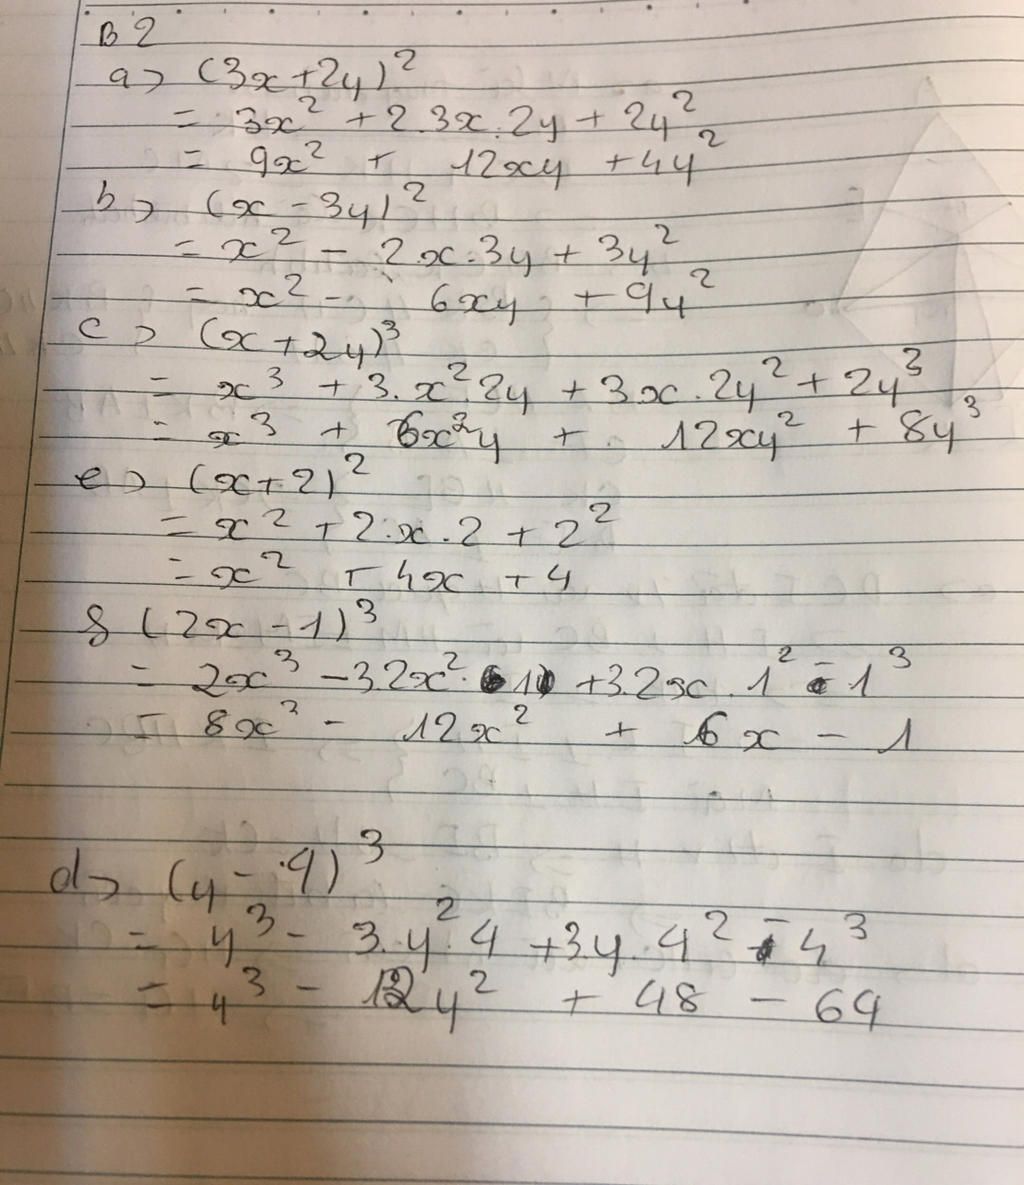 B2
a> (3x+2y)²
= 3x² + 2.3x.2y + 2y²
= 9x² + 12xy + 4y²
b> (x - 3y)²
= x² - 2.x.3y + 3y²
= x² - 6xy + 9y²
c> (x+2y)³
= x³ + 3.x².2y + 3x.2y² + 2y³
= x³ + 6x²y + 12xy² + 8y³
e> (x+2)²
= x² + 2.x.2 + 2²
= x² + 4x + 4
f (2x - 1)³
= 2x³ - 3.2x².1 + 3.2x.1² - 1³
= 8x³ - 12x² + 6x - 1
d> (y - 4)³
= y³ - 3.y².4 + 3.y.4² - 4³
= y³ - 12y² + 48 - 64